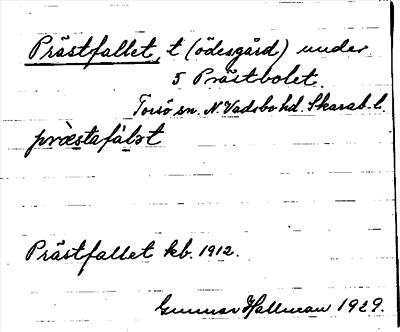 Prästfallet, t (ödesgård) under
5 Prästbolet.
Torsö sn. N. Vadsbo hd. Skarab. l.
præ̀stafàlət
Prästfallet kb. 1912.
Gunnar Hallman 1929.